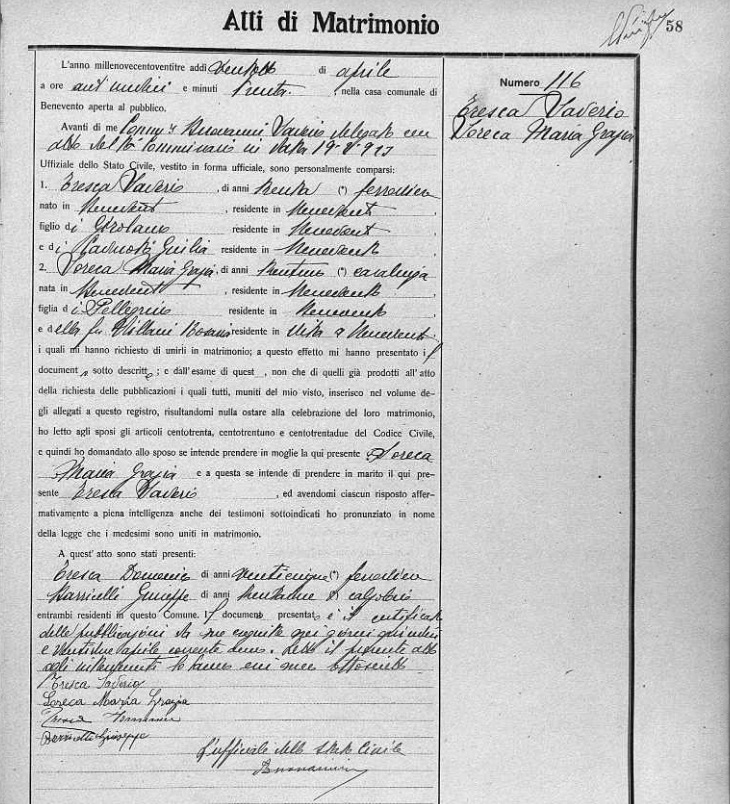 Atti di Matrimonio
58
Numero 116
Eresca Saverio
Soreca Maria Grazia
L'anno millenovecentoventitre addì ventotto di aprile
a ore antimeridiane e minuti trenta, nella casa comunale di
Benevento aperta al pubblico.
Avanti di me Giovanni delegato con
atto del Commissario in data 19
Uffiziale dello Stato Civile, vestito in forma ufficiale, sono personalmente comparsi:
1. Eresca Saverio, di anni trenta (*) ferroviere
nato in Benevento, residente in Benevento,
figlio di Girolamo residente in Benevento,
e di Giulia residente in Benevento,
2. Soreca Maria Grazia, di anni trentuno (*) casalinga
nata in Benevento, residente in Benevento,
figlia di Pellegrino residente in Benevento
e della fu Villani residente in vita a Benevento
i quali mi hanno richiesto di unirli in matrimonio; a questo effetto mi hanno presentato i
document sotto descritt ; e dall'esame di quest , non che di quelli già prodotti all'atto
della richiesta delle pubblicazioni i quali tutti, muniti del mio visto, inserisco nel volume de-
gli allegati a questo registro, risultandomi nulla ostare alla celebrazione del loro matrimonio,
ho letto agli sposi gli articoli centotrenta, centotrentuno e centotrentadue del Codice Civile,
e quindi ho domandato allo sposo se intende prendere in moglie la qui presente Soreca
Maria Grazia e a questa se intende di prendere in marito il qui pre-
sente Eresca Saverio, ed avendomi ciascun risposto affer-
mativamente a piena intelligenza anche dei testimoni sottoindicati ho pronunziato in nome
della legge che i medesimi sono uniti in matrimonio.
A quest' atto sono stati presenti:
Eresca Domenico di anni venticinque (*) ferroviere
Barricelli Giuseppe di anni (*) calzolaio
entrambi residenti in questo Comune. Il document presentat è il certificato
delle pubblicazioni da me eseguite nei giorni quindici
e ventidue aprile corrente anno. Letto il presente atto
agli intervenuti lo hanno con me sottoscritto
Eresca Saverio
Soreca Maria Grazia
Barricelli Giuseppe
L'ufficiale dello stato civile